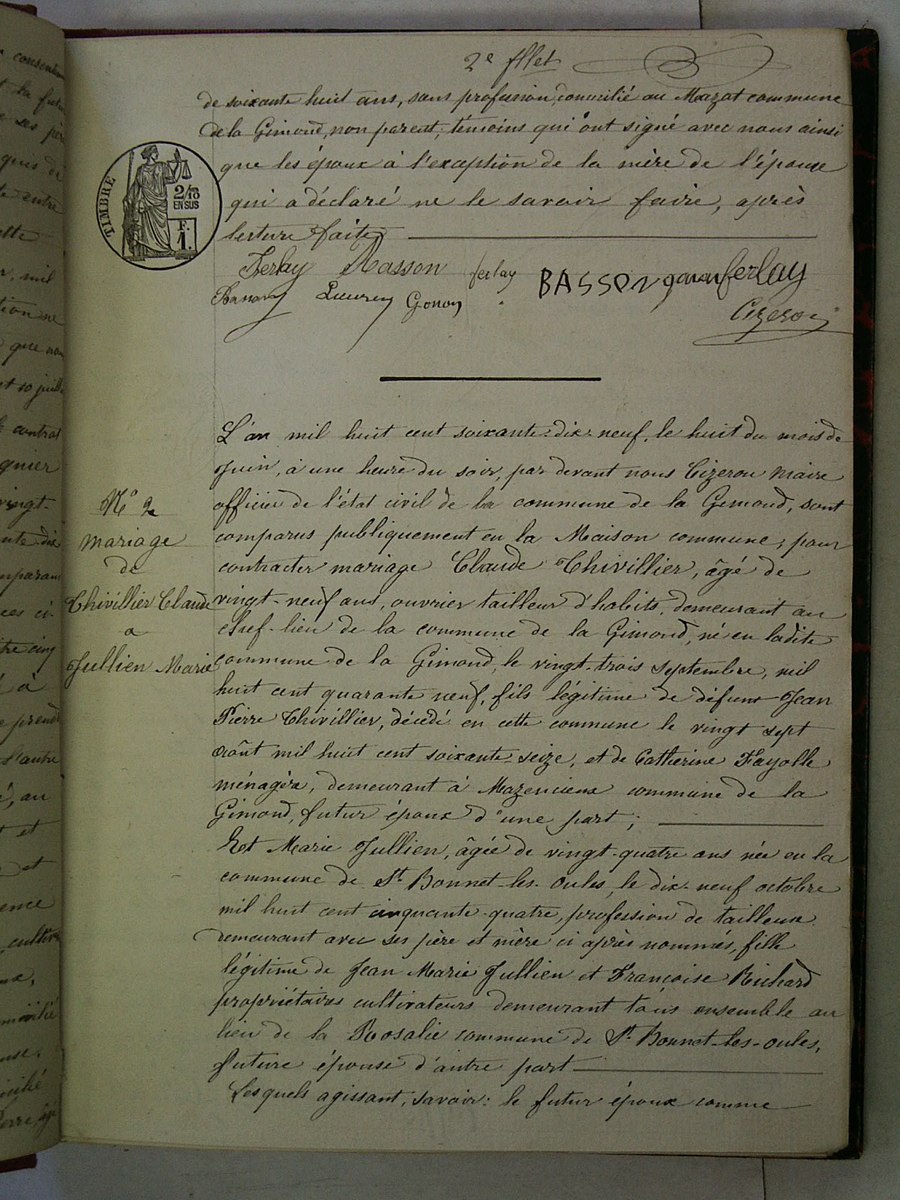 2e fllet
de soixante huit ans, sans profession, domicilié au Mazat commune
de la Gimond, non parent, témoins qui ont signé avec nous ainsi
que les époux à l'exception de la mère de l'épouse
qui a déclaré ne le savoir faire, après
lecture faite
TIMBRE
2/10
EN SUS
F.
1.
Ferlay Basson ferlay BASSON ferlay
Gonon
Cizeron
L'an mil huit cent soixante-dix-neuf, le huit du mois de
Juin, à une heure du soir, par devant nous Cizeron Maire
officier de l'état civil de la commune de la Gimond, sont
comparus publiquement en la Maison commune, pour
contracter mariage Claude Thivillier, âgé de
vingt-neuf ans, ouvrier tailleur d'habits, demeurant au
chef-lieu de la commune de la Gimond, né en ladite
commune de la Gimond, le vingt-trois septembre, mil
huit cent quarante neuf, fils légitime de défunt Jean
Pierre Thivillier, décédé en cette commune le vingt sept
août mil huit cent soixante-seize, et de Catherine Fayolle
ménagère, demeurant à Mazencieux commune de la
Gimond, futur époux d'une part;
Et Marie Jullien, âgée de vingt-quatre ans née en la
commune de St Bonnet-les-Oules, le dix-neuf octobre
mil huit cent cinquante-quatre, profession de tailleuse
demeurant avec ses père et mère ci après nommés, fille
légitime de Jean Marie Jullien et Françoise Richard
propriétaires cultivateurs demeurant tous ensemble au
lieu de la Rosalie commune de St Bonnet-les-oules,
future épouse d'autre part
Lesquels agissant, savoir: le futur époux comme
No 2
mariage
de
Thivillier Claude
a
Jullien Marie